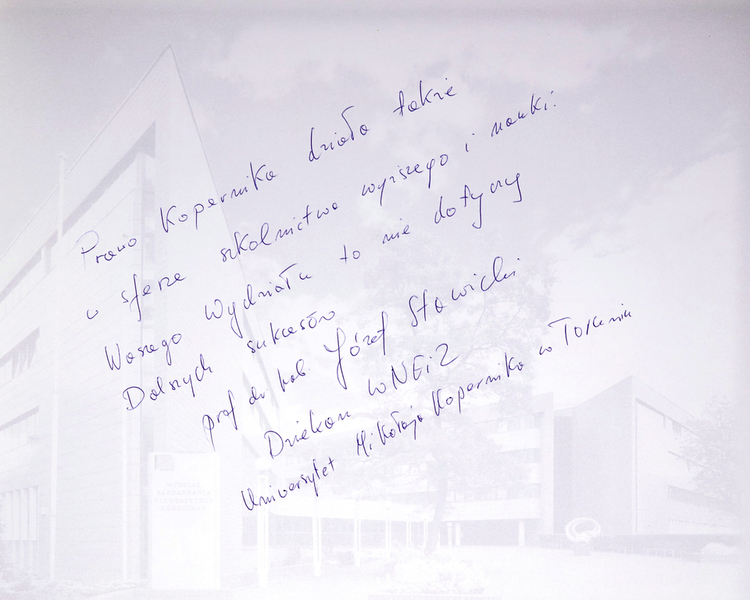 Prawo Kopernika działa także
w sferze szkolnictwa wyższego i nauki.
Waszego Wydziału to nie dotyczy
Dalszych sukcesów
prof dr hab. Józef Stawicki
Dziekan WNEiZ
Uniwersytet Mikołaja Kopernika w Toruniu